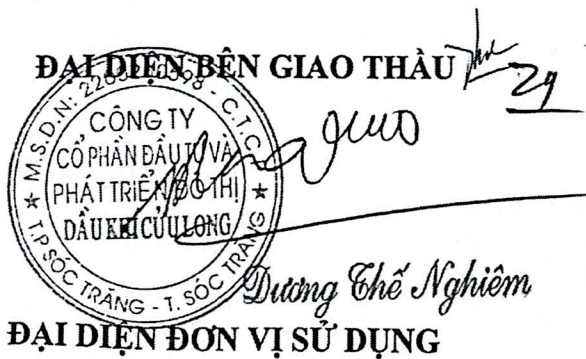 ĐẠI DIỆN BÊN GIAO THẦU
29
M.S.D.N: - C.T.C.P
CÔNG TY
CỔ PHẦN ĐẦU TƯ VÀ
PHÁT TRIỂN ĐÔ THỊ
DẦU KHÍ CỬU LONG
T.P SÓC TRĂNG - T. SÓC TRĂNG
Dương Thế Nghiêm
ĐẠI DIỆN ĐƠN VỊ SỬ DỤNG